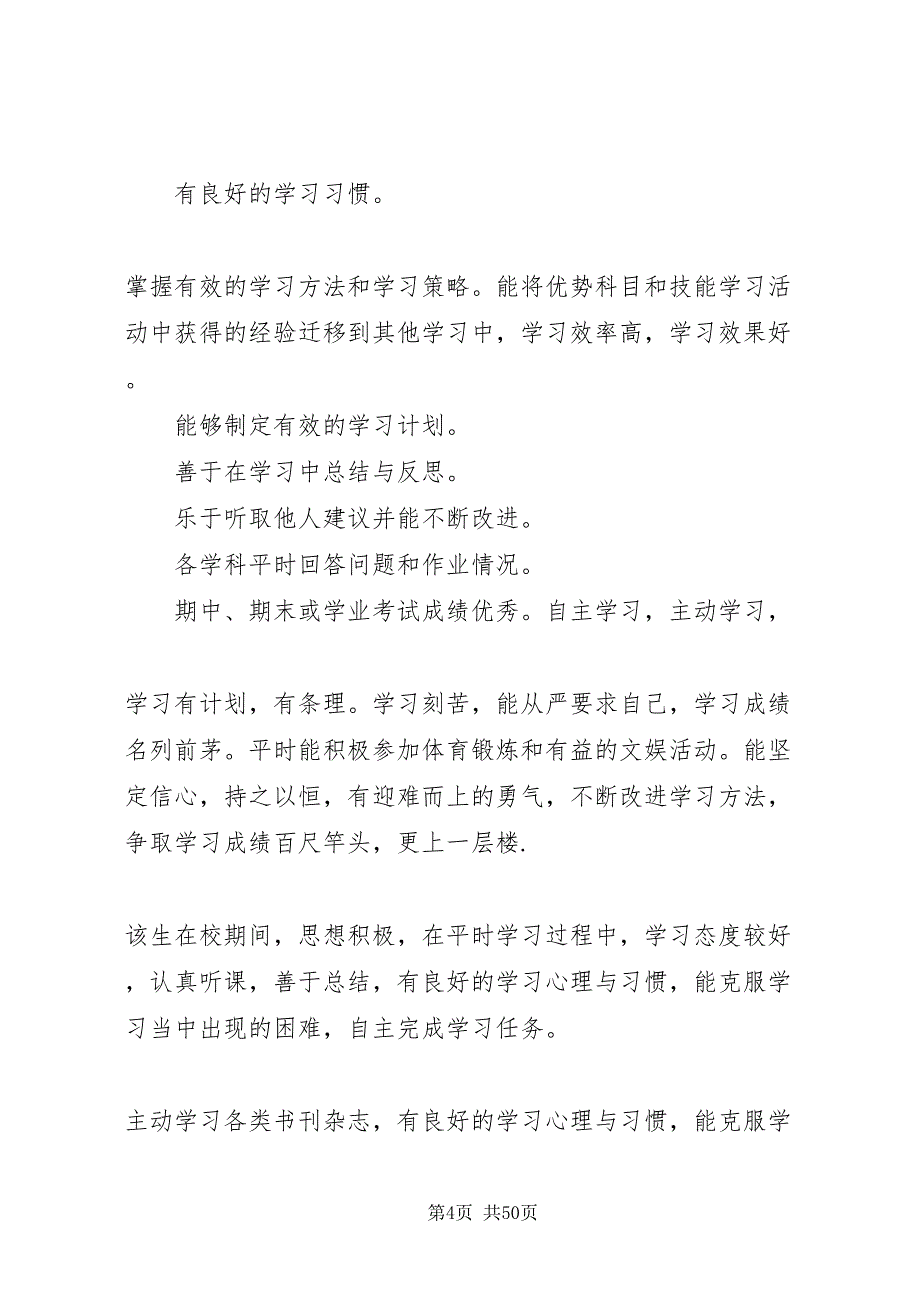 有良好的学习习惯。
掌握有效的学习方法和学习策略。能将优势科目和技能学习活
动中获得的经验迁移到其他学习中，学习效率高，学习效果好
。
能够制定有效的学习计划。
善于在学习中总结与反思。
乐于听取他人建议并能不断改进。
各学科平时回答问题和作业情况。
期中、期末或学业考试成绩优秀。自主学习，主动学习，
学习有计划，有条理。学习刻苦，能从严要求自己，学习成绩
名列前茅。平时能积极参加体育锻炼和有益的文娱活动。能坚
定信心，持之以恒，有迎难而上的勇气，不断改进学习方法，
争取学习成绩百尺竿头，更上一层楼.
该生在校期间，思想积极，在平时学习过程中，学习态度较好
，认真听课，善于总结，有良好的学习心理与习惯，能克服学
习当中出现的困难，自主完成学习任务。
主动学习各类书刊杂志，有良好的学习心理与习惯，能克服学
第4页 共50页